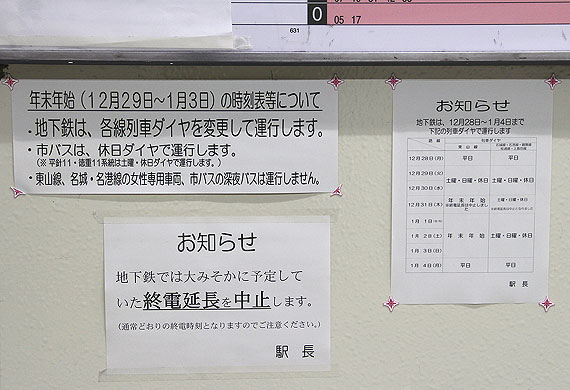 0
05 17
631
年末年始(12月29日〜1月3日)の時刻表等について
・地下鉄は、各線列車ダイヤを変更して運行します。
・市バスは、休日ダイヤで運行します。
(※ 平針11・徳重11系統は土曜・休日ダイヤで運行します。)
・東山線、名城・名港線の女性専用車両、市バスの深夜バスは運行しません。
お知らせ
地下鉄では大みそかに予定して
いた終電延長を中止します。
(通常どおりの終電時刻となりますのでご注意ください。)
駅 長
お知らせ
地下鉄は、12月28日〜1月4日まで
下記の列車ダイヤで運行します
列車ダイヤ
東山線
12月28日(月) 平日 平日
12月29日(火) 土曜・日曜・休日 土曜・日曜・休日
12月30日(水)
12月31日(木) 年末年始 土曜・日曜・休日
1月 1日
1月 2日(土) 年末年始 土曜・日曜・休日
1月 3日(日)
1月 4日(月) 平日 平日
駅 長